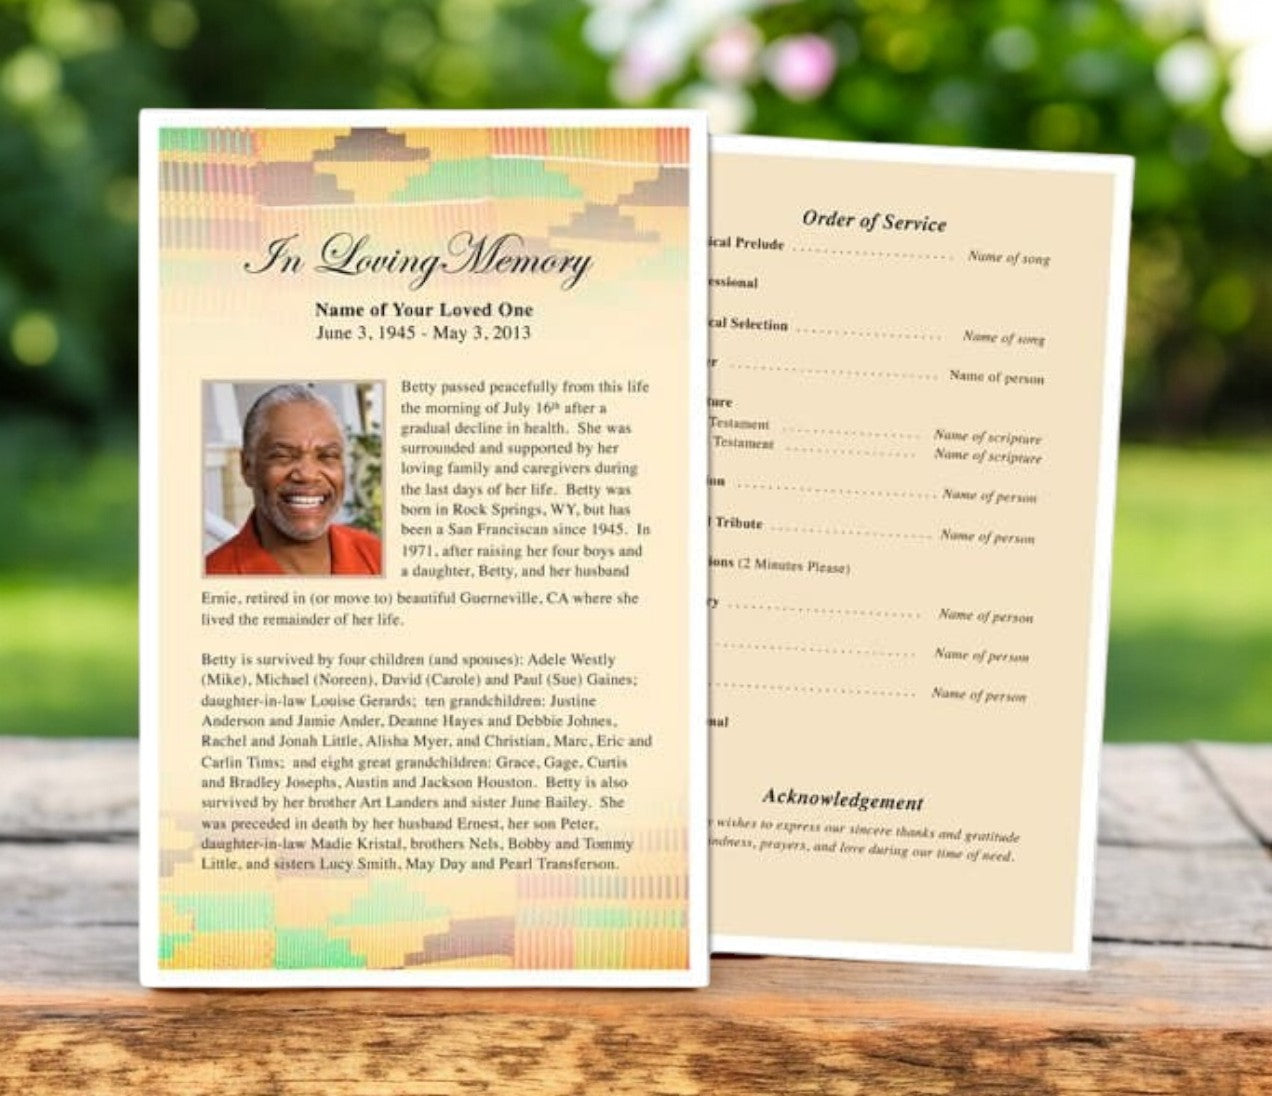 In Loving Memory
Name of Your Loved One
June 3, 1945 - May 3, 2013
Betty passed peacefully from this life
the morning of July 16th after a
gradual decline in health. She was
surrounded and supported by her
loving family and caregivers during
the last days of her life. Betty was
born in Rock Springs, WY, but has
been a San Franciscan since 1945. In
1971, after raising her four boys and
a daughter, Betty, and her husband
Ernie, retired in (or move to) beautiful Guerneville, CA where she
lived the remainder of her life.
Betty is survived by four children (and spouses): Adele Westly
(Mike), Michael (Noreen), David (Carole) and Paul (Sue) Gaines;
daughter-in-law Louise Gerards; ten grandchildren: Justine
Anderson and Jamie Ander, Deanne Hayes and Debbie Johnes,
Rachel and Jonah Little, Alisha Myer, and Christian, Marc, Eric and
Carlin Tims; and eight great grandchildren: Grace, Gage, Curtis
and Bradley Josephs, Austin and Jackson Houston. Betty is also
survived by her brother Art Landers and sister June Bailey. She
was preceded in death by her husband Ernest, her son Peter,
daughter-in-law Madie Kristal, brothers Nels, Bobby and Tommy
Little, and sisters Lucy Smith, May Day and Pearl Transferson.
Order of Service
ical Prelude .......................... Name of song
essional
cal Selection ....................... Name of song
r ................................ Name of person
ture
Testament ..................... Name of scripture
Testament .................... Name of scripture
on .............................. Name of person
l Tribute ........................ Name of person
ions (2 Minutes Please)
ry ............................. Name of person
............................... Name of person
............................... Name of person
nal
Acknowledgement
r wishes to express our sincere thanks and gratitude
indness, prayers, and love during our time of need.